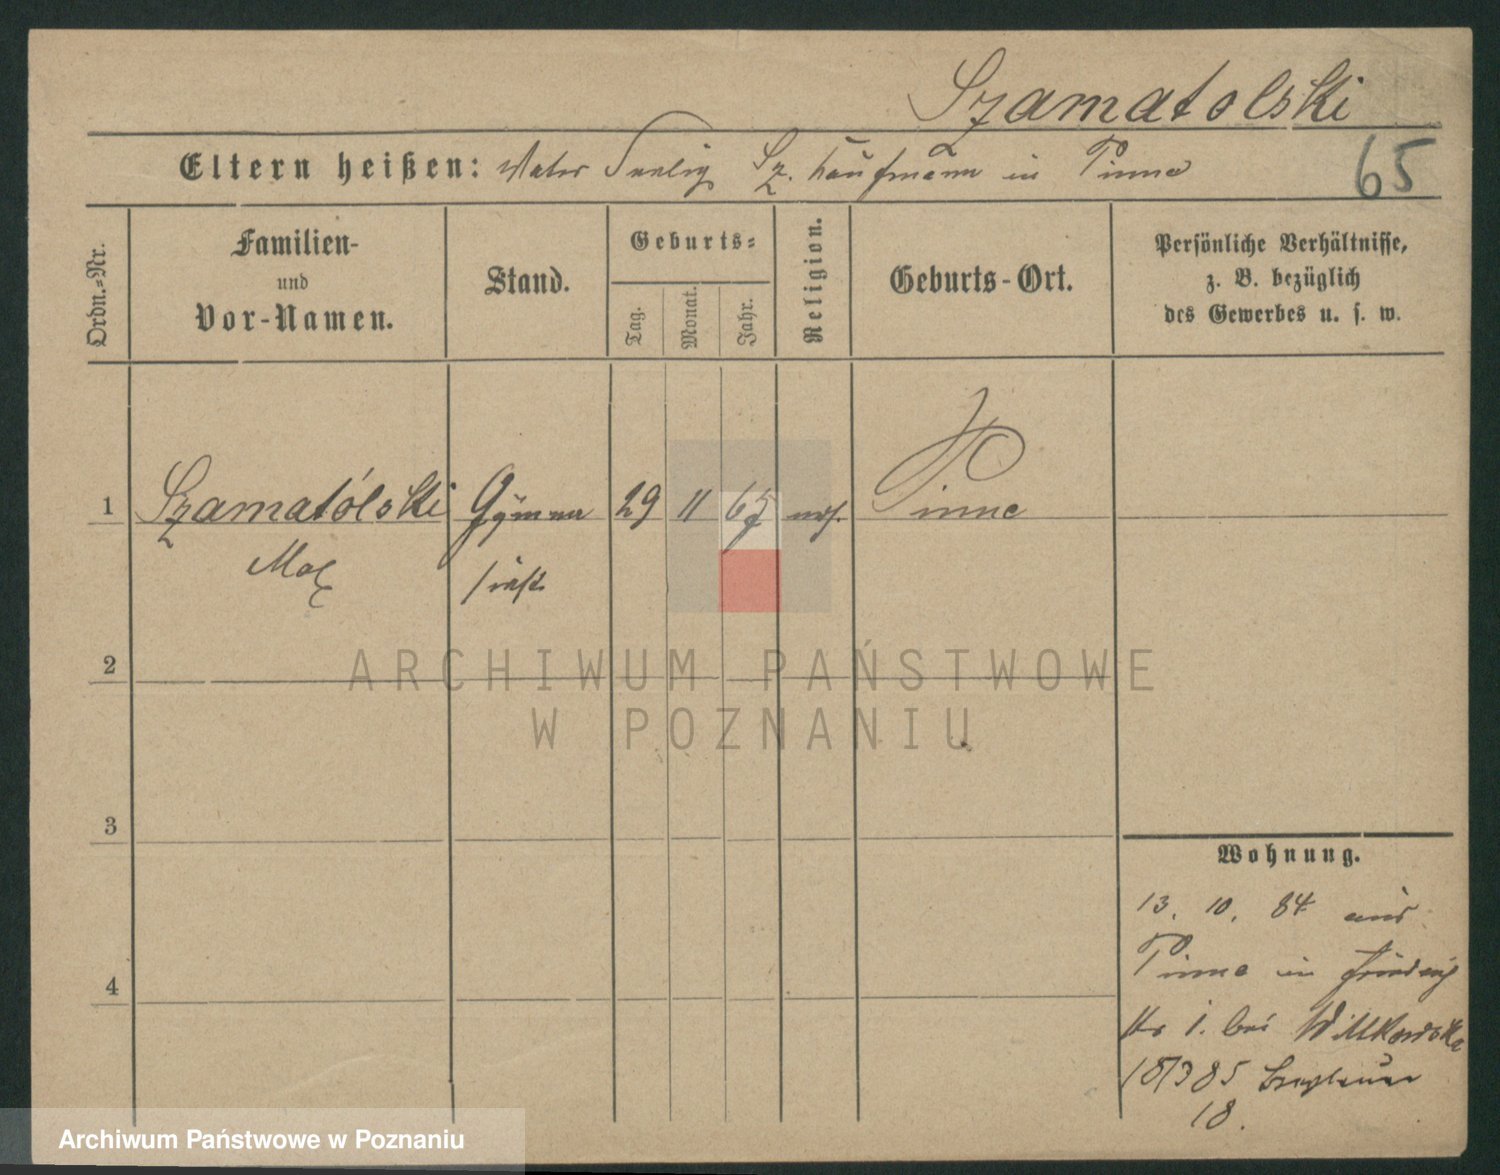 Szamatolski
Eltern heißen: Vater Seelig Sz. Kaufmann in Pinne
65
Ordn.-Nr.
Familien-
und
Vor-Namen.
Stand.
Geburts-
Tag.
Monat.
Jahr.
Religion.
Geburts-Ort.
Persönliche Verhältnisse,
z. B. bezüglich
des Gewerbes u. s. w.
1
Szamatólski
Max
Gymna
siast
29
11
65
mos.
Pinne
2
3
4
ARCHIWUM PAŃSTWOWE
W POZNANIU
Wohnung.
13. 10. 84 aus
Pinne in
bei Willkowska
85 Breslauer
18.
Archiwum Państwowe w Poznaniu